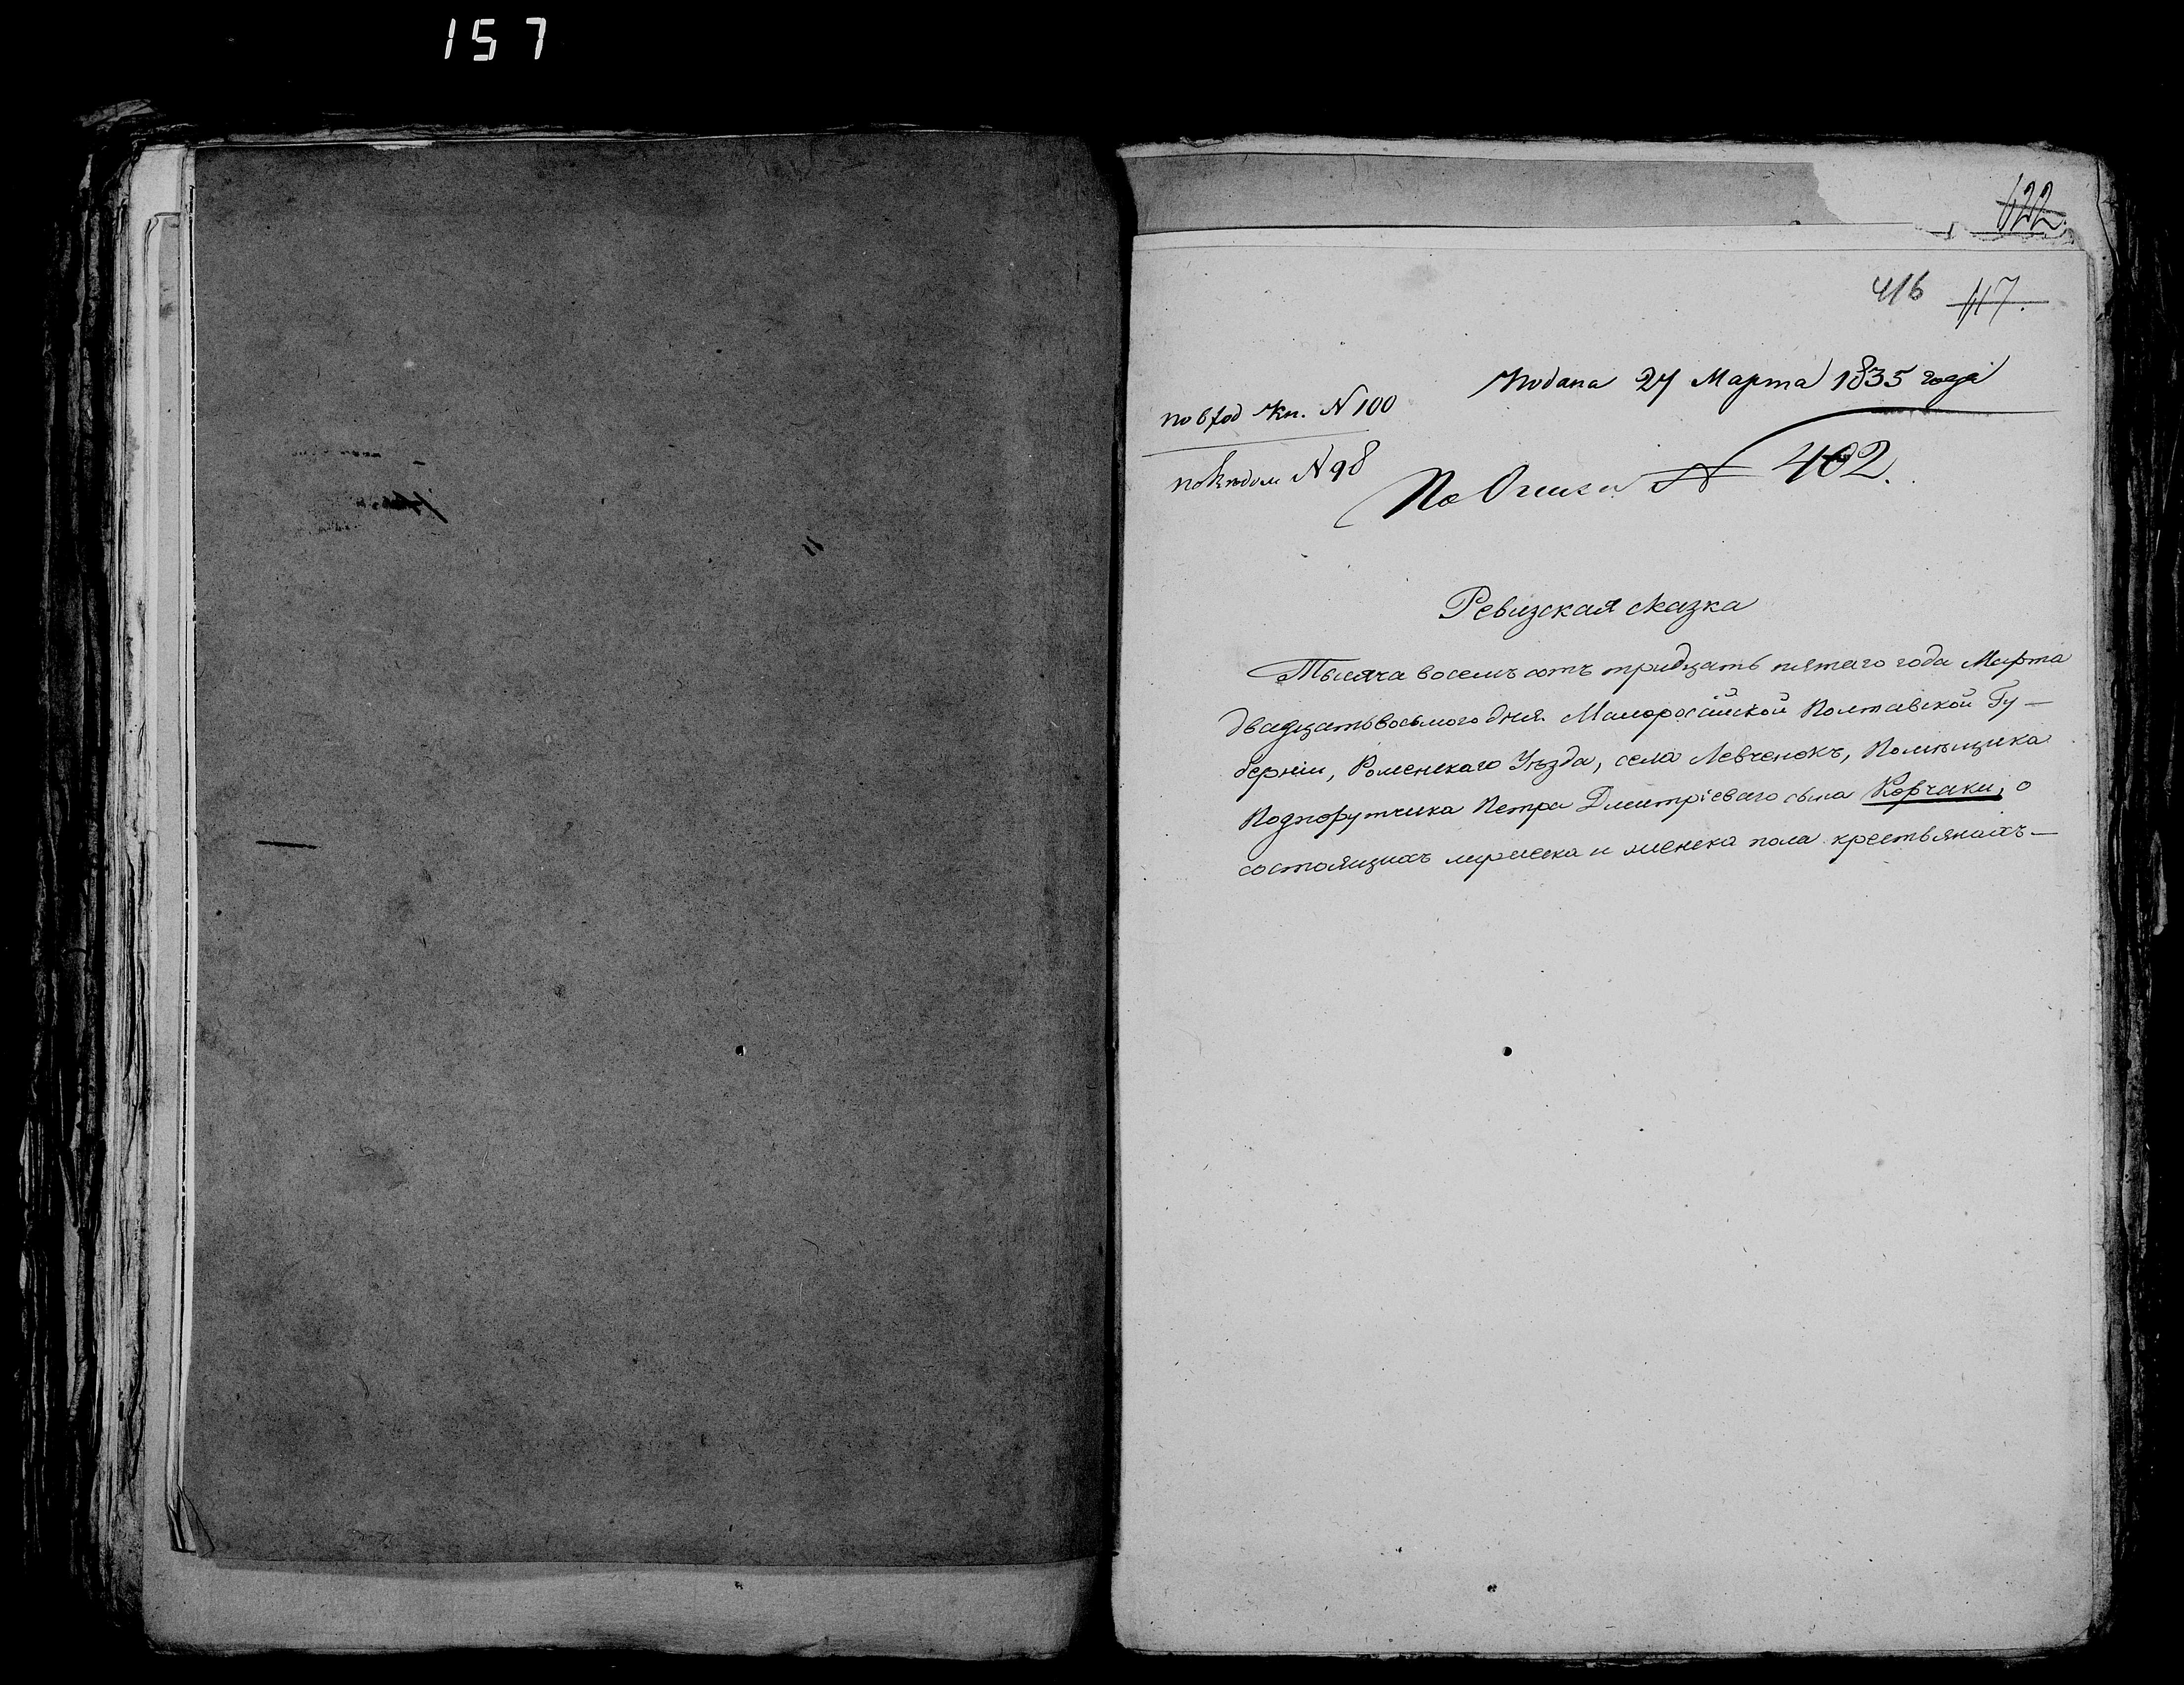 157
122
416 417.
Подана 27 Марта 1835 года
по вход кн. N 100
N 98
По Описи N 402.
Ревизская сказка
Тысяча восемъ сотъ тридцать пятаго года Марта
двадцать восьмого дня Малоросійской Полтавской Гу-
берніи, Роменскаго Уѣзда, села Левченокъ, Помѣщика
Подпорутчика Петра Дмитріеваго сына Корчаки, о
состоящихъ мужеска и женска пола крестьянахъ-